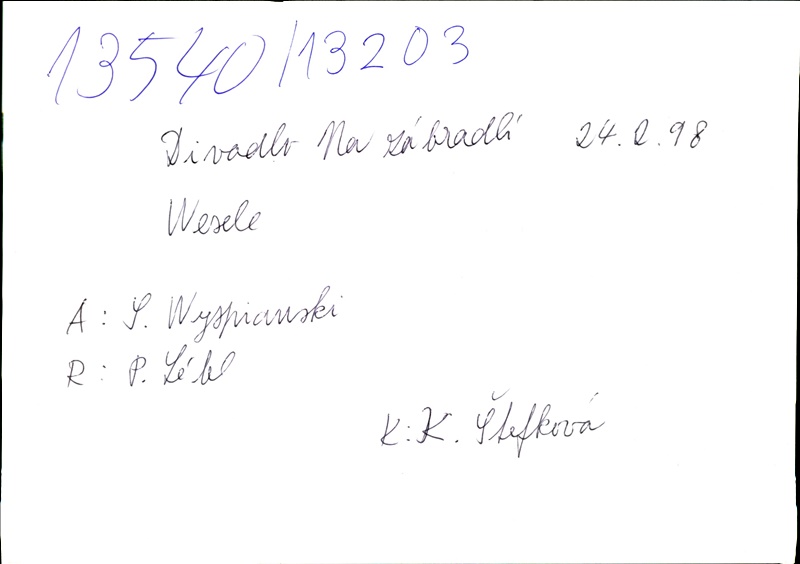 13540/13203
Divadlo Na zábradlí 24.2.98
Wesele
A: S. Wyspianski
R: P. Lébl
K: K. Štefková